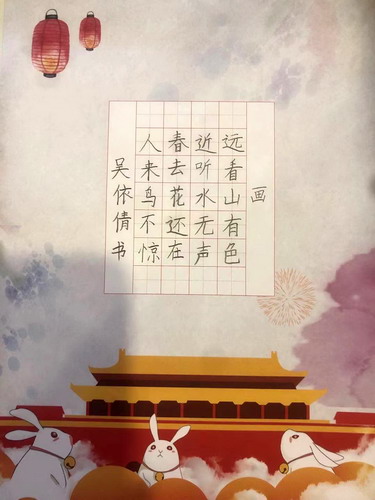 画
远看山有色
近听水无声
春去花还在
人来鸟不惊
吴依倩书